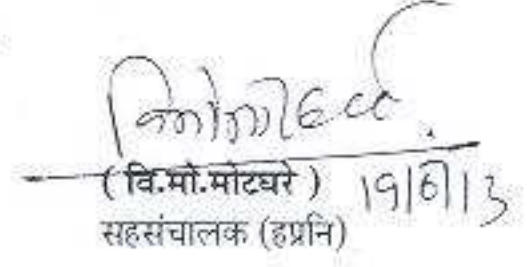 ( वि.मो.मोटघरे ) 19/6/13
सहसंचालक (हप्रनि)